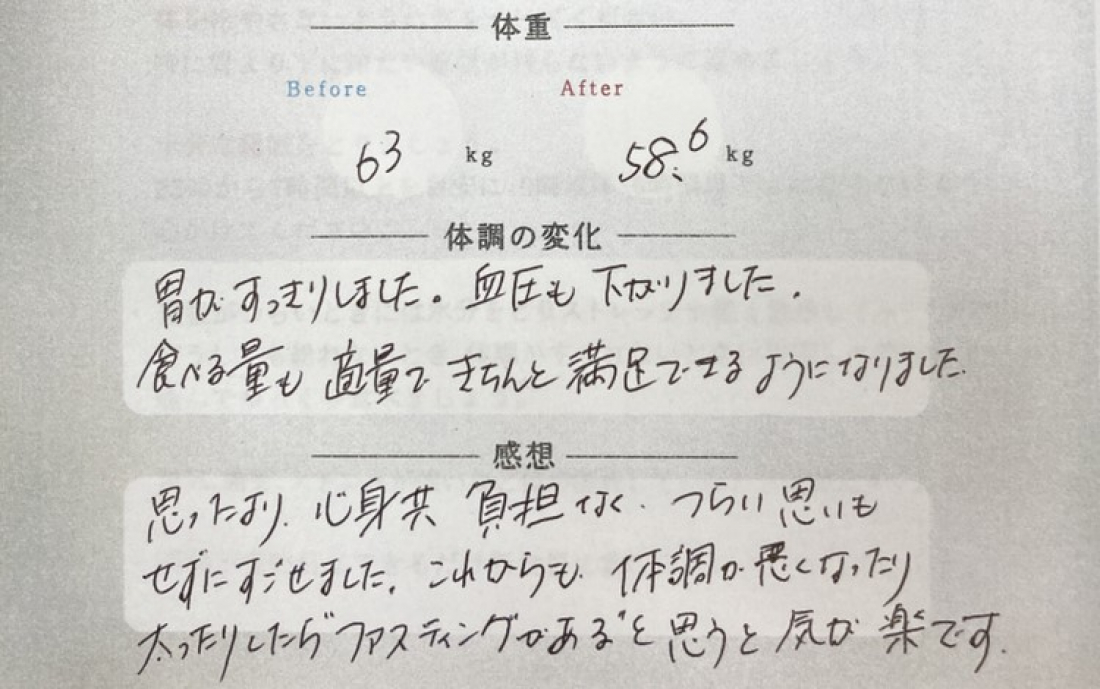 体重
Before After
63 kg 58.6 kg
体調の変化
胃がすっきりしました。血圧も下がりました.
食べる量も適量できちんと満足できるようになりました.
感想
思ったより、心身共負担なく、つらい思いも
せずにすごせました。これからも、体調が悪くなったり
太ったりしたら“ファスティングがある”と思うと気が楽です.